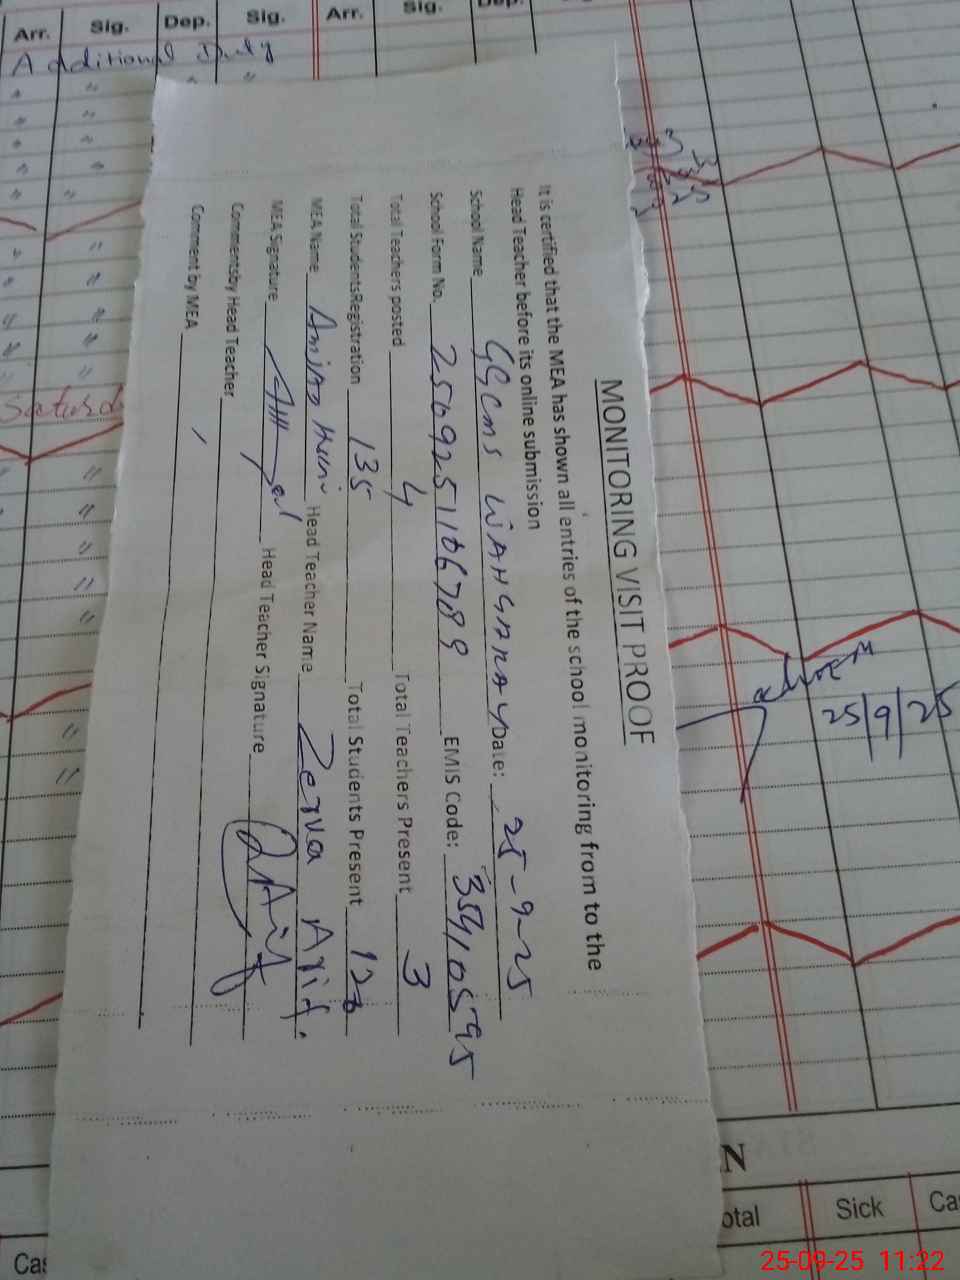 Arr. Sig. Dep. Sig. Arr. Sig. Dep.
Additional Duty
MONITORING VISIT PROOF
It is certified that the MEA has shown all entries of the school monitoring from to the
Head Teacher before its online submission
School Name GGCMS WAHGARAY Date: 25-9-25
School Form No. 2509251106789 EMIS Code: 35410595
Total Teachers posted 4 Total Teachers Present 3
Total StudentsRegistration 135 Total Students Present
MEA Name Amjad Head Teacher Name Zerva Arif.
MEA Signature Head Teacher Signature
Commentsby Head Teacher
Comment by MEA
25/9/25
N
otal Sick Ca
Cas
25-09-25 11:22